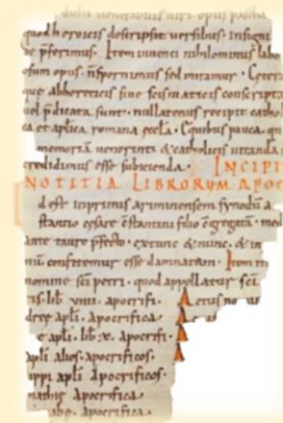 venerabilis viri opus pascha
quod heroicis descripsit versibus. Insigni
preferimus. Item iuvenci nihilominus labo
osum opus. nspernimus sed miramur. Cetera
que ab hereticis sive scismaticis conscripta
vel predicata sunt. nullatenus recipit catho
ca et aplica romana eccla. Equibus pauca. que
memoriam venerint et catholicis vitanda s
credidimus esse subicienda. INCIPI
NOTITIA LIBRORUM APOC
inprimis ariminensem synodum a
stantio cesare constantini filio congregatam. med
ante tauro pfecto. extunc et nunc. et in
num confitemur esse damnatam. Item iti
nomine sci petri. quod appellatur sci
tis. lib. viiii. apocrifi. Actus no
dree apli. apocrifi. Actus
e apli. lib. x. apocrifi. A
apli alios. apocrificos. A
ippi apli apocrificos.
mathie apocrifica.
apocrifica.